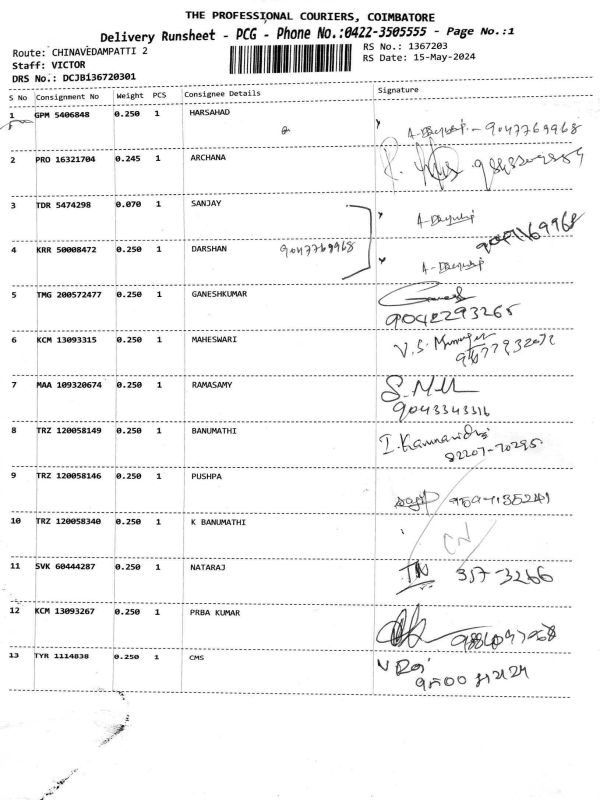 THE PROFESSIONAL COURIERS, COIMBATORE
Delivery Runsheet - PCG - Phone No.:0422-3505555 - Page No.:1
Route: CHINAVEDAMPATTI 2
RS No.: 1367203
Staff: VICTOR
RS Date: 15-May-2024
DRS No.: DCJB136720301
S No Consignment No Weight PCS Consignee Details Signature
1 GPM 5406848 0.250 1 HARSAHAD 9047769968
2 PRO 16321704 0.245 1 ARCHANA
3 TDR 5474298 0.070 1 SANJAY
4 KRR 50008472 0.250 1 DARSHAN 9047769968
5 TMG 200572477 0.250 1 GANESHKUMAR Ganesh
9042293265
6 KCM 13093315 0.250 1 MAHESWARI V.S.
7 MAA 109320674 0.250 1 RAMASAMY
9043343316
8 TRZ 120058149 0.250 1 BANUMATHI
82207-70295
9 TRZ 120058146 0.250 1 PUSHPA
10 TRZ 120058340 0.250 1 K BANUMATHI CN
11 SVK 60444287 0.250 1 NATARAJ 357-3266
12 KCM 13093267 0.250 1 PRBA KUMAR
13 TYR 1114838 0.250 1 CMS